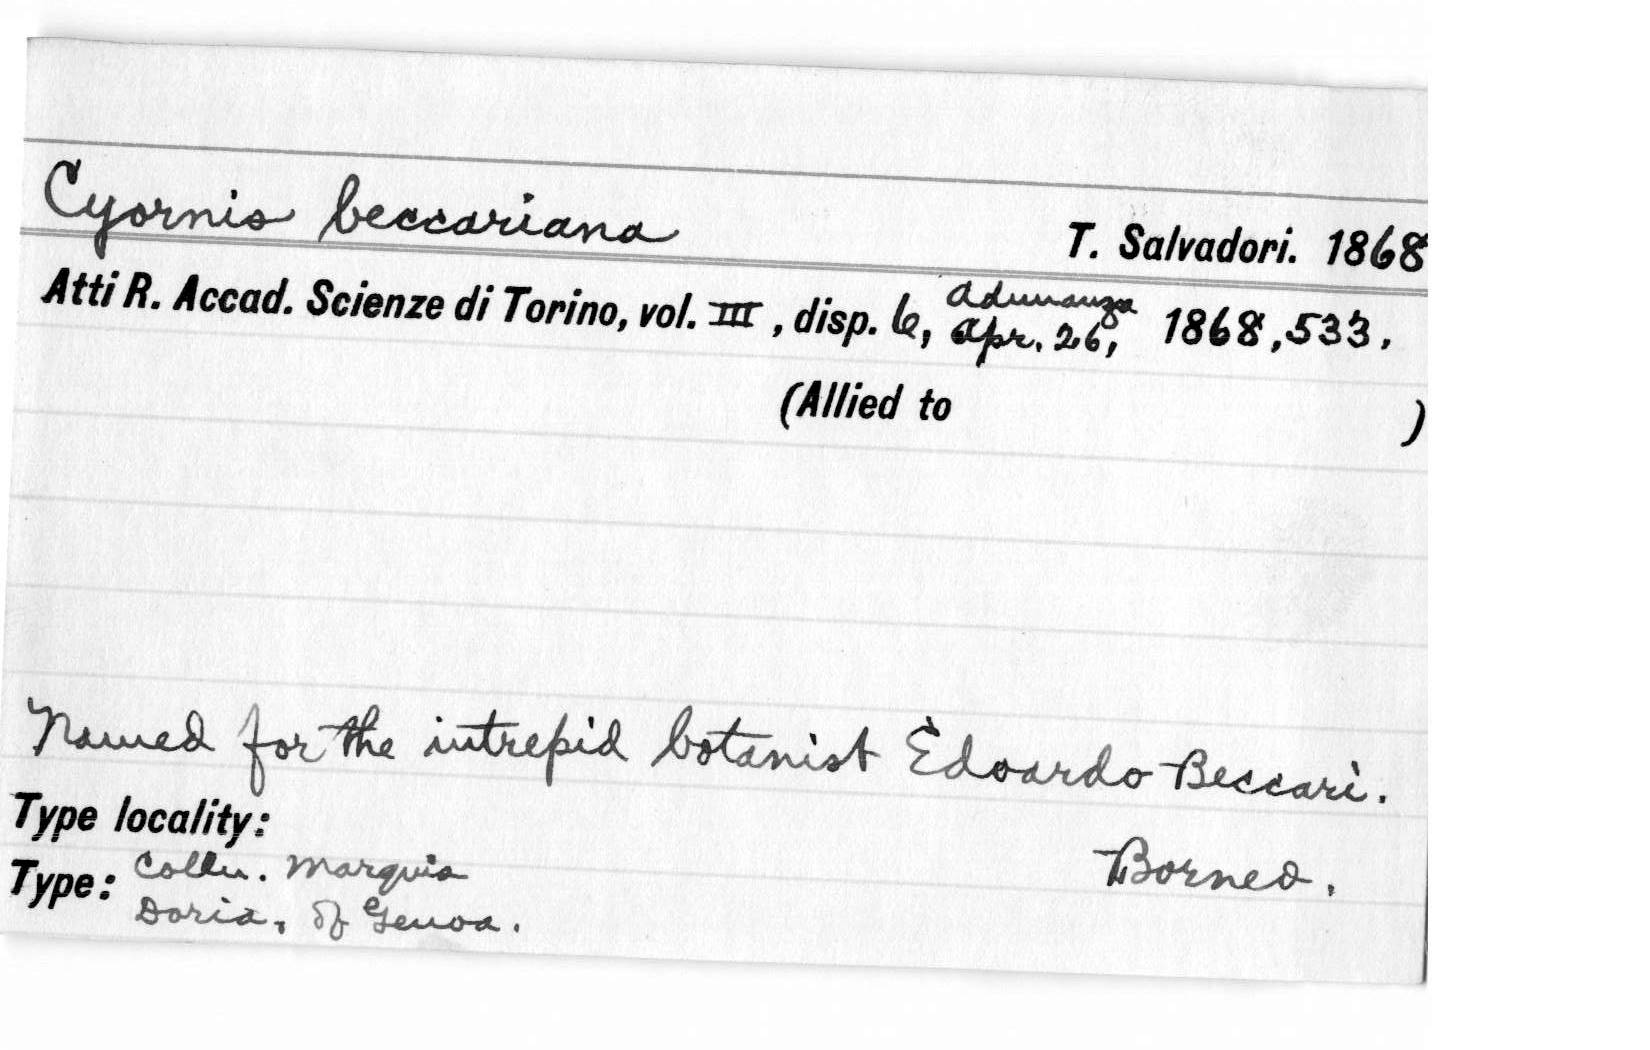 Cyornis beccariana T. Salvadori. 1868
Atti R. Accad. Scienze di Torino, vol. III, disp. 6, adunanza Apr. 26, 1868, 533.
(Allied to )
Named for the intrepid botanist Edoardo Beccari.
Type locality:
Borneo.
Type: Colln. Marquis
Doria, of Genoa.